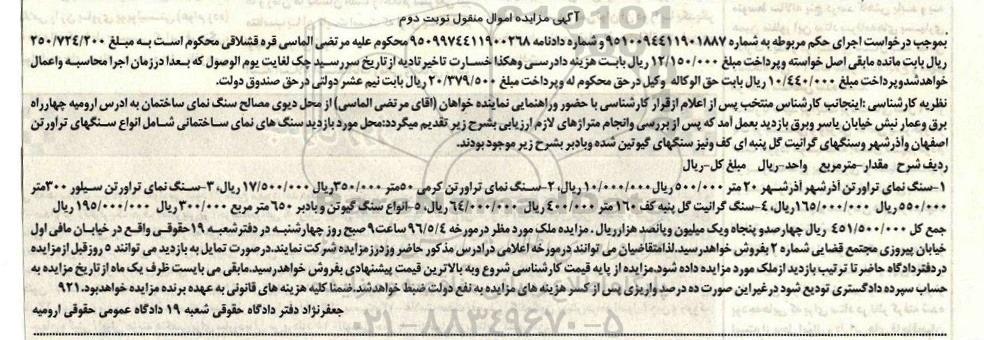 آگهی مزایده اموال منقول نوبت دوم
بموجب درخواست اجرای حکم مربوطه به شماره ۹۵۱۰۰۹۴۴۱۱۹۰۱۸۸۷ و شماره دادنامه ۹۵۰۹۹۷۴۴۱۱۹۰۰۲۶۸ محکوم علیه مرتضی الماسی قره قشلاقی محکوم است به مبلغ ۲۵۰/۷۲۴/۲۰۰
ریال بابت مانده مابقی اصل خواسته وپرداخت مبلغ ۱۲/۱۵۰/۰۰۰ ریال بابت هزینه دادرسی وهکذا خسارت تاخیر تادیه از تاریخ سررسید چک لغایت یوم الوصول که بعدا درزمان اجرا محاسبه واعمال
خواهدشدوپرداخت مبلغ ۱۰/۴۴۰/۰۰۰ ریال بابت حق الوکاله وکیل درحق محکوم له وپرداخت مبلغ ۲۰/۳۷۹/۵۰۰ ریال بابت نیم عشر دولتی درحق صندوق دولت.
نظریه کارشناسی :اینجانب کارشناس منتخب پس از اعلام ازقرار کارشناسی با حضور وراهنمایی نماینده خواهان (اقای مرتضی الماسی) از محل دپوی مصالح سنگ نمای ساختمان به ادرس ارومیه چهارراه
برق وعمار نبش خیابان یاسر وبرق بازدید بعمل آمد که پس از بررسی وانجام متراژهای لازم ارزیابی بشرح زیر تقدیم میگردد:محل مورد بازدید سنگ های نمای ساختمانی شامل انواع سنگهای تراورتن
اصفهان واذرشهر وسنگهای گرانیت گل پنبه ای کف ونیز سنگهای گیوتین شده وبادبر بشرح زیر موجود بودند.
ردیف شرح مقدار-مترمربع واحد-ریال مبلغ کل-ریال
۱-سنگ نمای تراورتن آذرشهر آذرشهر ۲۰ متر ۵۰۰/۰۰۰ ریال ۱۰/۰۰۰/۰۰۰ ریال، ۲-سنگ نمای تراورتن کرمی ۵۰متر ۳۵۰/۰۰۰ریال ۱۷/۵۰۰/۰۰۰ ریال، ۳-سنگ نمای تراورتن سیلور ۳۰۰متر
۵۵۰/۰۰۰ ریال ۱۶۵/۰۰۰/۰۰۰ریال، ۴-سنگ گرانیت گل پنبه کف ۱۶۰ متر ۴۰۰/۰۰۰ ریال ۶۴/۰۰۰/۰۰۰ ریال، ۵-انواع سنگ گیوتن وبادبر ۶۵۰ متر مربع ۳۰۰/۰۰۰ ریال ۱۹۵/۰۰۰/۰۰۰ ریال
جمع کل ۴۵۱/۵۰۰/۰۰۰ ریال چهارصدو پنجاه ویک میلیون وپانصد هزارریال . مزایده ملک مورد مظر درمورخه ۹۶/۵/۴ ساعت ۹ صبح روز چهارشنبه در دفترشعبه ۱۹حقوقی واقع در خیابان مافی اول
خیابان پیروزی مجتمع قضایی شماره ۲ بفروش خواهد رسید.لذامتقاضیان می توانند درموزخه اعلامی درادرس مذکور حاضر وزدرزمزایده شرکت نمایند.درصورت تمایل به بازدید می توانند ۵ روزقبل ازمزایده
دردفتردادگاه حاضر تا ترتیب بازدید ازملک مورد مزایده داده شود.مزایده از پایه قیمت کارشناسی شروع وبه بالاترین قیمت پیشنهادی بفروش خواهدرسید.مابقی می بایست ظرف یک ماه از تاریخ مزایده به
حساب سپرده دادگستری تودیع شود درغیراین صورت ده درصد واریزی پس از کسر هزینه های مزایده به نفع دولت ضبط خواهدشد.ضمنا کلیه هزینه های قانونی به عهده برنده مزایده خواهدبود.۹۲۱
جعفرنژاد دفتر دادگاه حقوقی شعبه ۱۹ دادگاه عمومی حقوقی ارومیه
۰۲۱-۸۸۳۴۹۶۷۰-۵